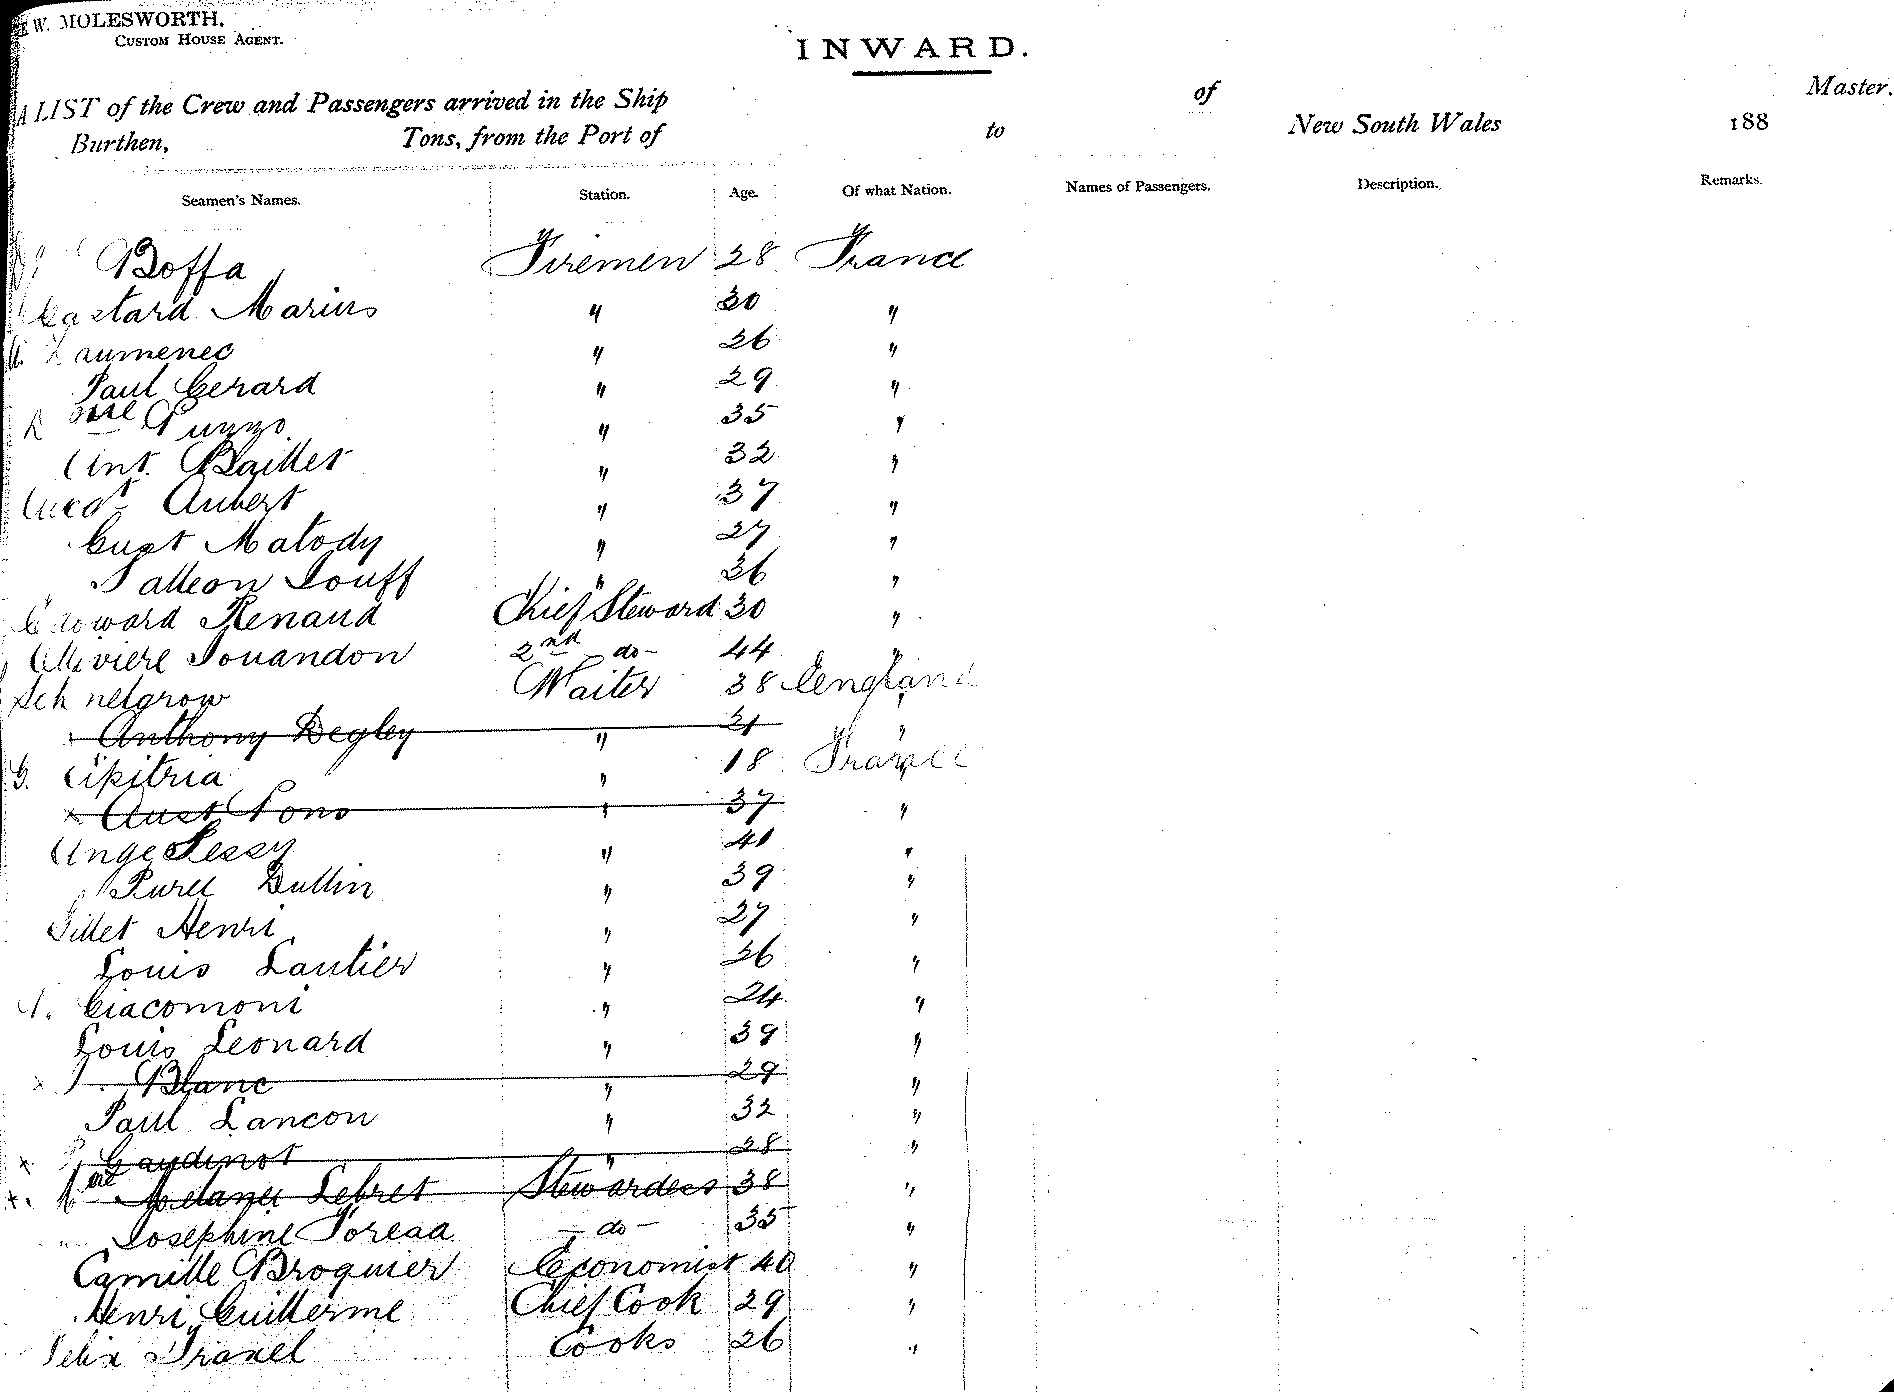 W. MOLESWORTH.
CUSTOM HOUSE AGENT.
INWARD.
A LIST of the Crew and Passengers arrived in the Ship of Master.
Burthen, Tons, from the Port of to New South Wales 188
Seamen's Names. Station. Age. Of what Nation. Names of Passengers. Description. Remarks.
Boffa Firemen 28 France
Castard Marius " 30 "
" 26 "
Paul Gerard " 29 "
" 35 "
Ant. Baillet " 32 "
Aubert " 37 "
Gust Matody " 27 "
" 26 "
Edward Renaud Chief Steward 30 "
Jouandon 2nd - do - 44 "
Waiter 38 England
Anthony Degley " 21 "
G. Cipitria " 18 France
Aust Pons " 37 "
Ange Pessy " 41 "
Dullin " 39 "
Henri " 27 "
Louis Lautier " 26 "
Giacomoni " 24 "
Louis Leonard " 39 "
Blanc " 29 "
Paul Lancon " 32 "
Gaudinot " 28 "
Melanie Lebret Stewardess 38 "
" Josephine - do - 35 "
Camille Broquier Economist 40 "
Henri Guillerme Chief Cook 29 "
Felix Cooks 26 "